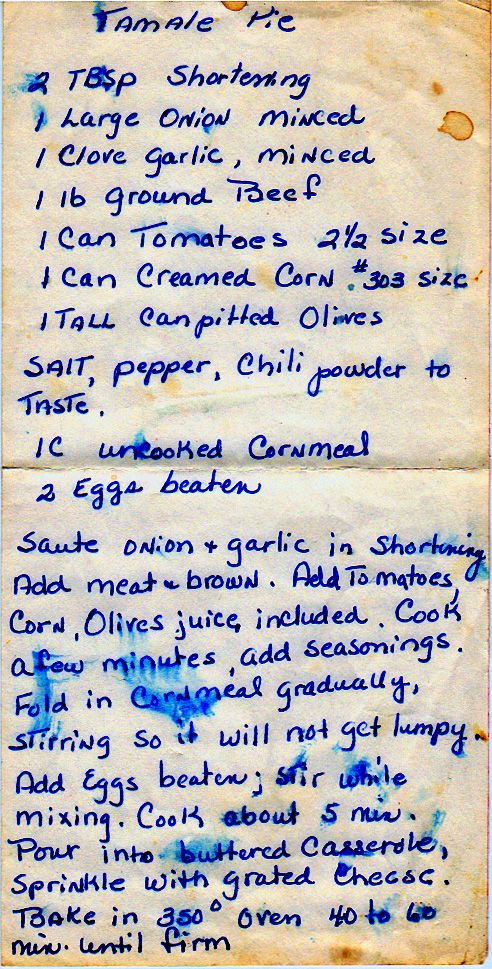 Tamale Pie
2 TBSP Shortening
1 Large Onion minced
1 Clove garlic, minced
1 lb ground Beef
1 Can Tomatoes 2½ size
1 Can Creamed Corn #303 size
1 Tall Can pitted Olives
Salt, pepper, Chili powder to
Taste.
1C uncooked Cornmeal
2 Eggs beaten
Saute onion + garlic in Shortening
Add meat & brown. Add Tomatoes,
Corn, Olives juice, included. Cook
a few minutes, add seasonings.
Fold in Cornmeal gradually,
stirring so it will not get lumpy.
Add Eggs beaten; stir while
mixing. Cook about 5 min.
Pour into buttered Casserole,
Sprinkle with grated Cheese.
Bake in 350° oven 40 to 60
min. until firm